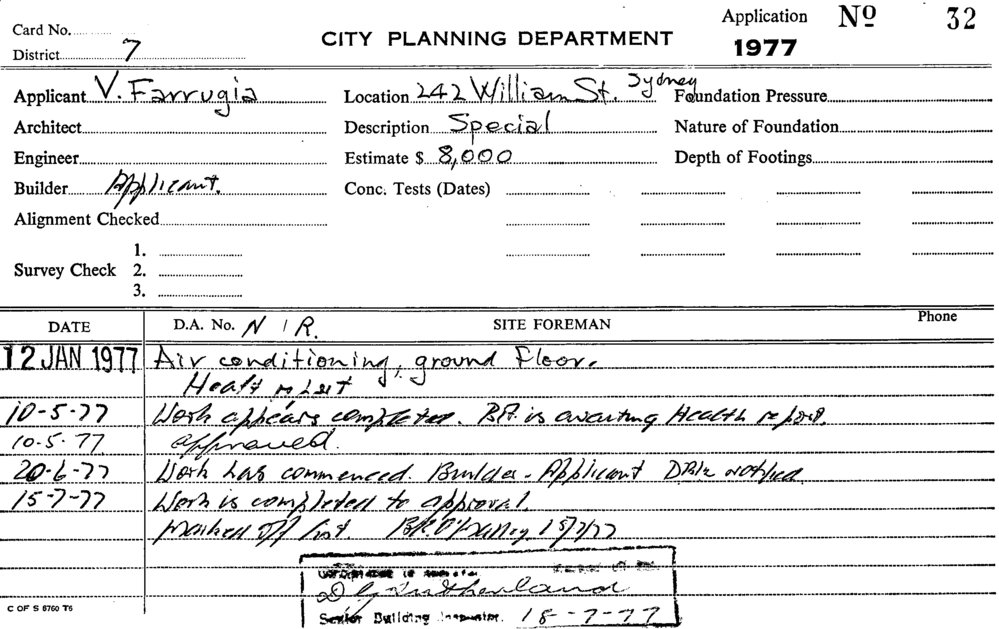 Card No.
District 7
CITY PLANNING DEPARTMENT
Application Nº 32
1977
Applicant V. Farrugia
Location 242 William St. Sydney
Foundation Pressure
Architect
Description Special
Nature of Foundation
Engineer
Estimate $ 8,000
Depth of Footings
Builder Applicant.
Conc. Tests (Dates)
Alignment Checked
Survey Check
1.
2.
3.
DATE
D.A. No. N I R.
SITE FOREMAN
Phone
12 JAN 1977 Air conditioning, ground floor.
10-5-77 Work appears completed. B.A. is awaiting Health report.
10.5.77 approved.
20-6-77 Work has commenced. Builder - Applicant notified
15-7-77 Work is completed to approval.
Marked off list. 15/7/77
Senior Building Inspector. 18-7-77
C OF S 6760 T6